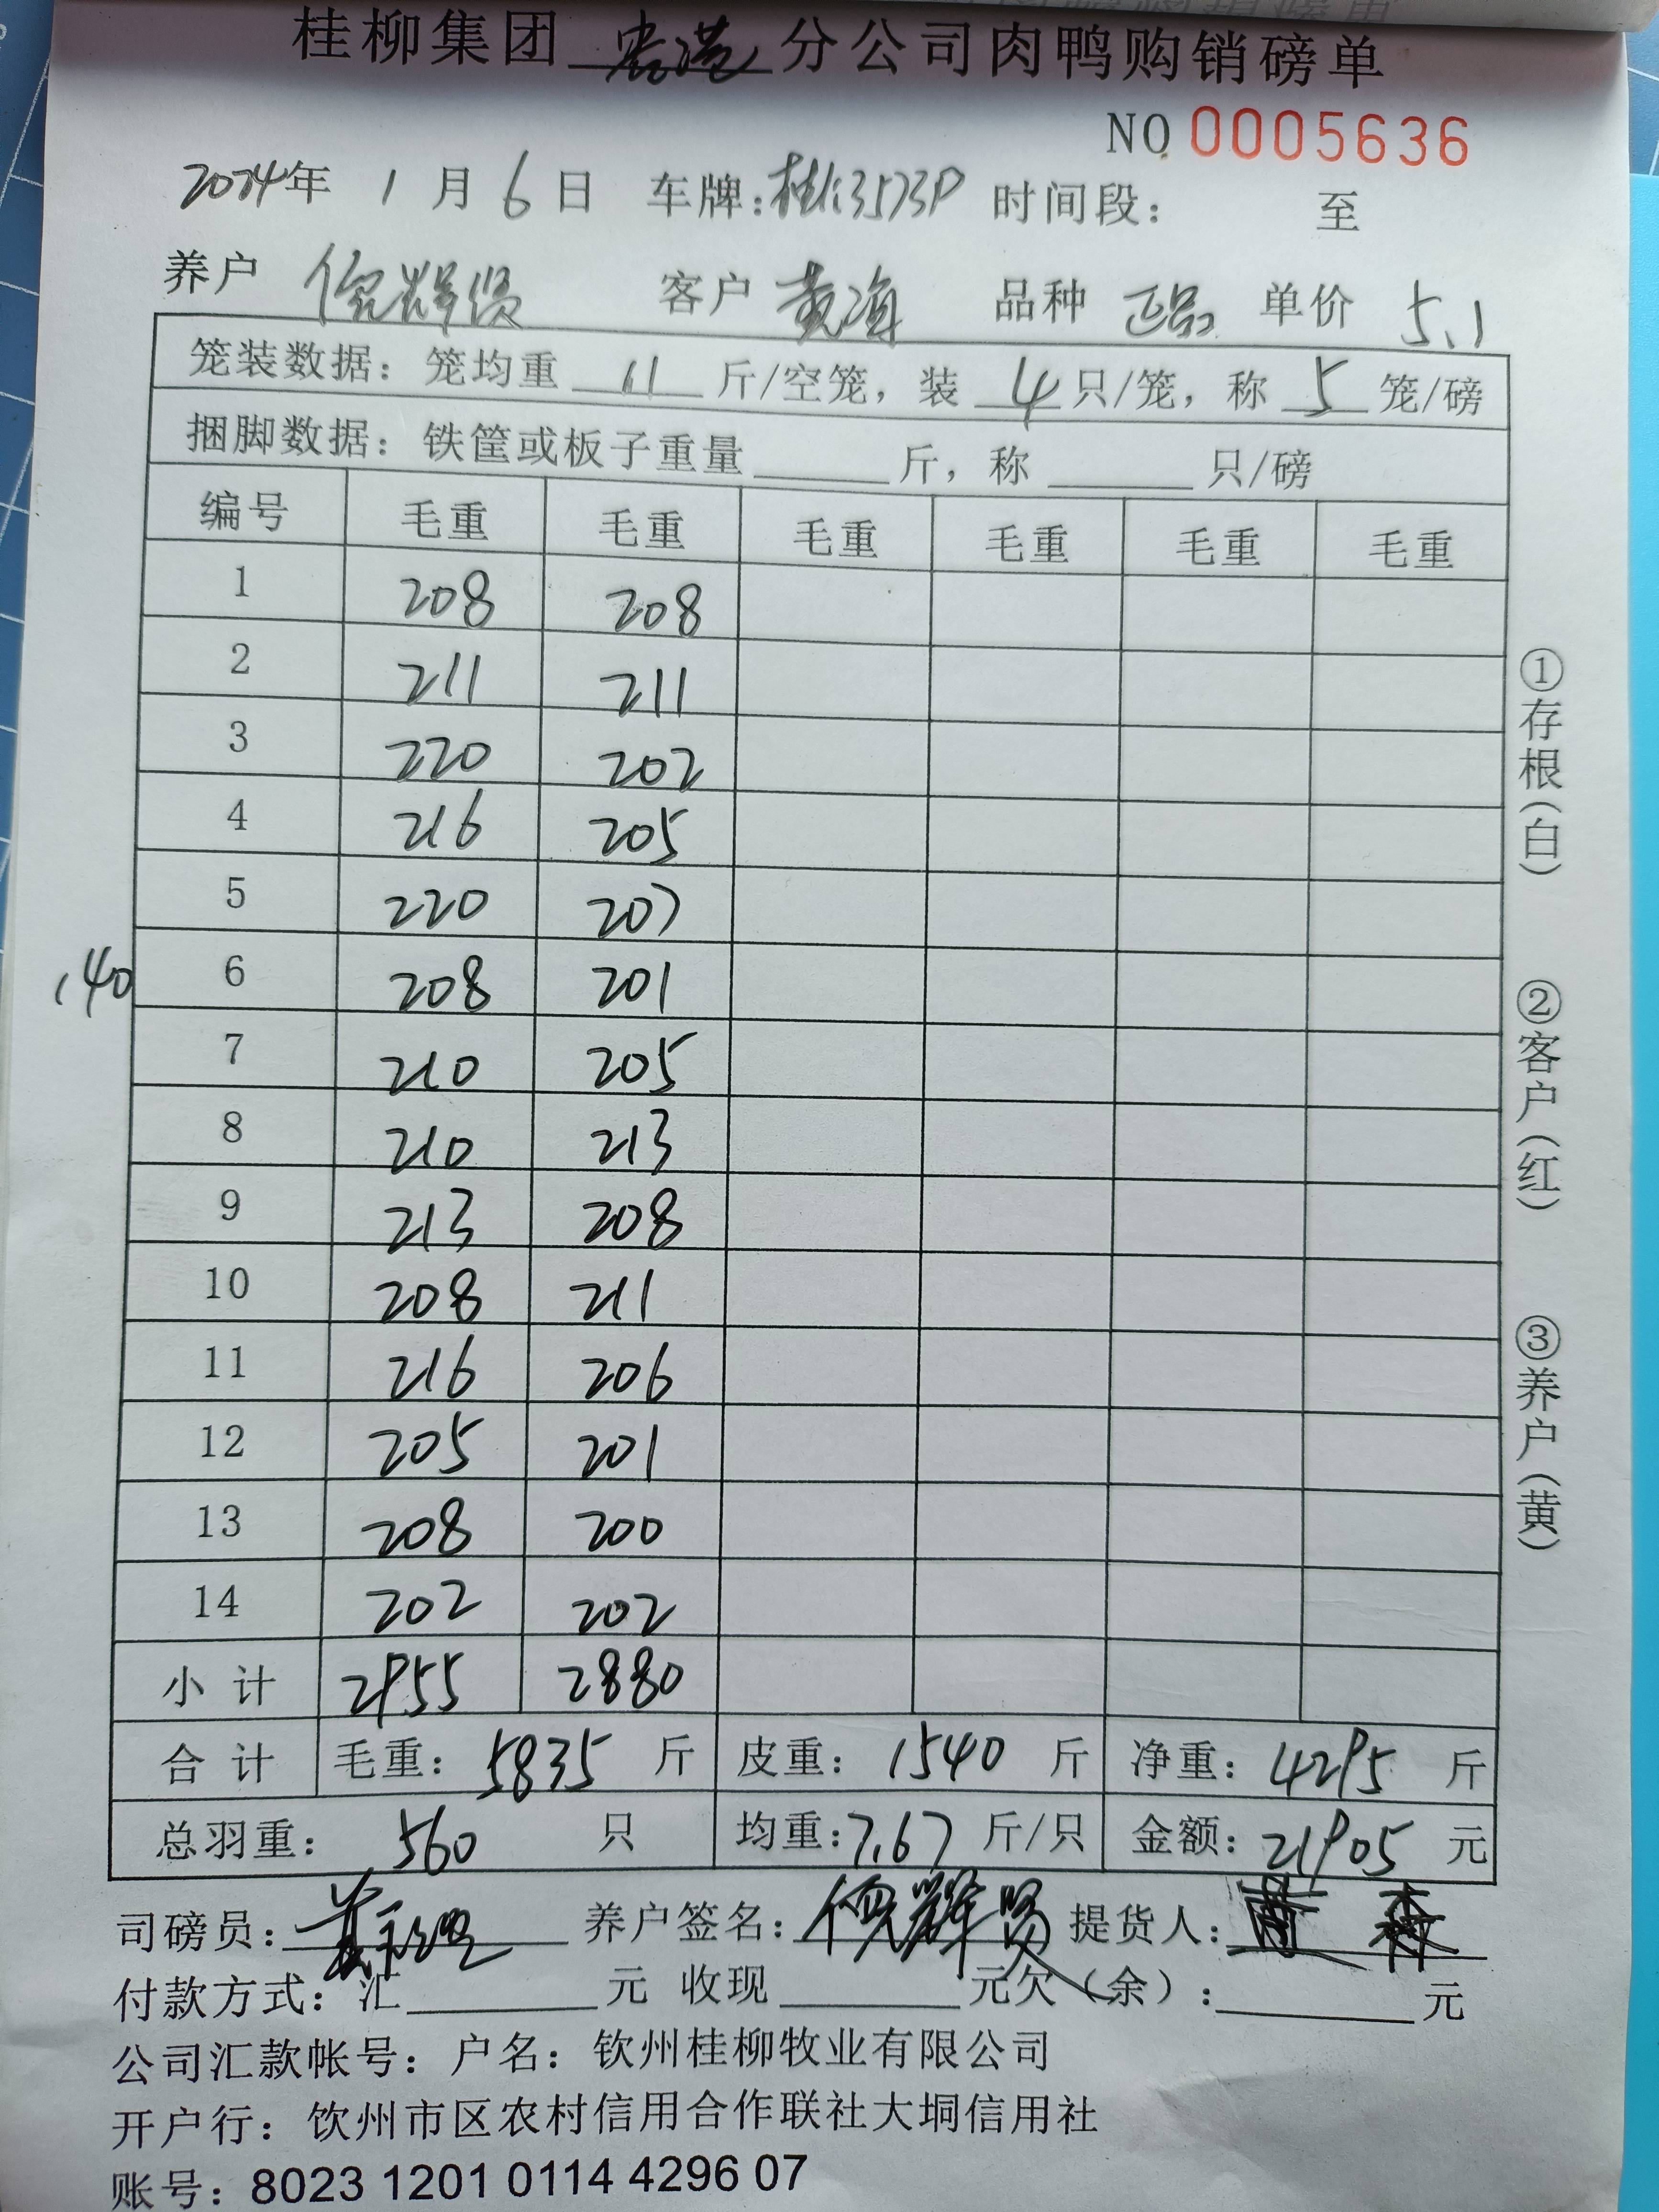 桂柳集团 贵港 分公司肉鸭购销磅单
NO 0005636
2024年 1 月 6 日 车牌: 时间段: 至
养户 倪辉贤 客户 黄海 品种 正品 单价 5.1
笼装数据: 笼均重 11 斤/空笼, 装 4 只/笼, 称 5 笼/磅
捆脚数据: 铁筐或板子重量 斤, 称 只/磅
编号 毛重 毛重 毛重 毛重 毛重 毛重
1 208 208
2 211 211
3 220 202
4 216 205
5 220 207
140
6 208 201
7 210 205
8 210 213
9 213 208
10 208 211
11 216 206
12 205 201
13 208 200
14 202 202
小计 2955 2880
合计 毛重: 5835 斤 皮重: 1540 斤 净重: 4295 斤
总羽重: 560 只 均重: 7.67 斤/只 金额: 21905 元
司磅员: 养户签名: 倪辉贤 提货人:
付款方式: 汇 元 收现 元欠(余): 元
公司汇款帐号: 户名: 钦州桂柳牧业有限公司
开户行: 钦州市区农村信用合作联社大垌信用社
账号: 8023 1201 0114 4296 07
①存根(白)
②客户(红)
③养户(黄)